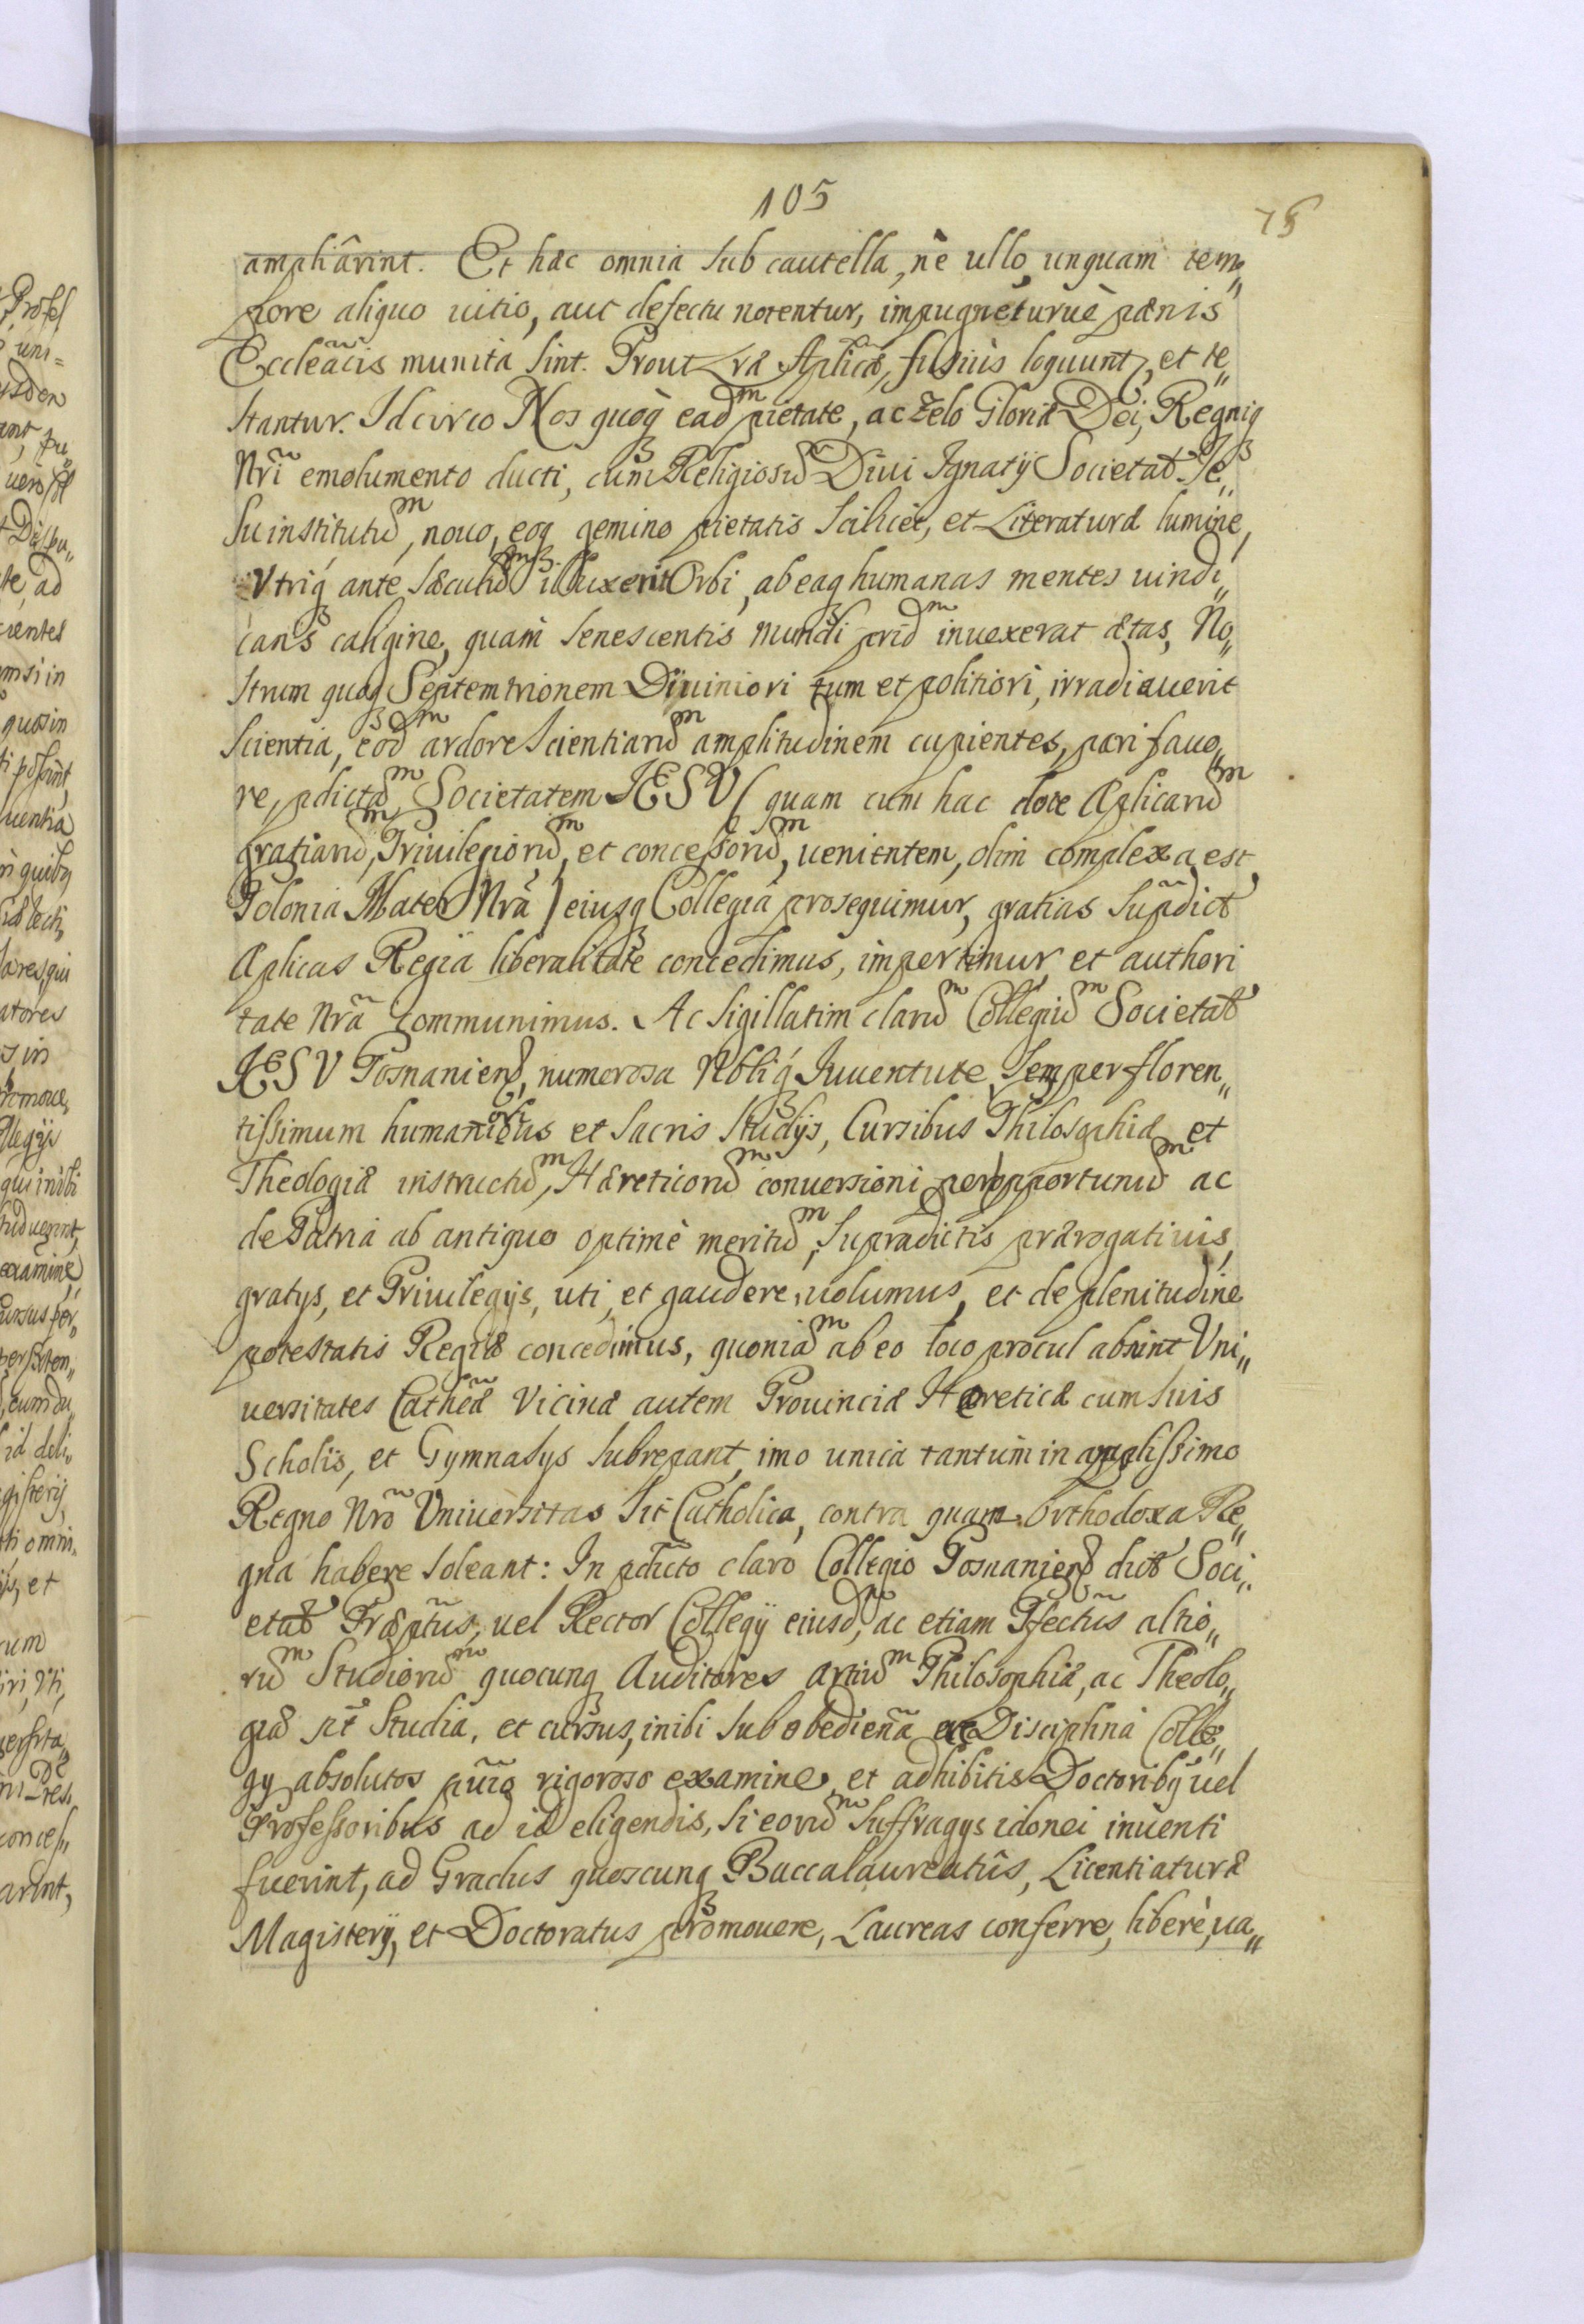 105
75
ampliârint. Et hæc omnia sub cautella, nè ullo unquam tem„
pore aliquo uitio, aut defectu notentur, impugneturuè pænis
Eccleãcis munita sint. Prout Lræ Aplicæ, fusiùs loquunt, et te„
stantur. Idcirco Nos quoq eadm pietate, ac zelo Gloriæ Dei, Regniq
Nrĩ emolumento ducti, cùm Religiosũ Diui Ignatij Societat Ie„
su institutum, nouo, eoq gemino pietatis scilicèt, et Literaturæ lumine,
Vtriq ante sæculum illuxerit Orbi, ab eaq humanas mentes uindi„
cans caligine, quam senescentis mundi pridm inuexerat ætas, No„
strum quoq Septemtrionem Diuiniori tum et politiori, irradiauerit
scientia, eodm ardore scientiarum amplitudinem cupientes, pari fauo„
re, pdictam Societatem IESV (quam cum hac dote Aplicarum
gratiarum, Priuilegiorum, et concessorum, uenientem, olim complexa est
Polonia Mater Nrã) eiusq Collegia prosequimur, gratias supdict
Aplicas Regiâ liberalitate concedimus, impertimur, et authori
tate Nrã communimus. Ac sigillatim clarum Collegium Societat
IESV Posnaniens, numerosa Nobliq Iuuentute semper floren„
tissimum humanioribus et sacris studijs, Cursibus Philosophiæ et
Theologiæ instructum, Hæreticorum conuersioni peropportunum ac
de Patria ab antiquo optimè meritum, supradictis prærogatiuis,
gratijs, et Priuilegijs, uti, et gaudere uolumus, et de plenitudine
potestatis Regiæ concedimus, quoniam ab eo loco procul absint Vni„
uersitates Cathcæ Vicinæ autem Prouinciæ Hæreticæ cum suis
Scholis, et Gymnasijs subrepant, imo unica tantùm in amplissimo
Regno Nrõ Vniuersitas sit Catholica, contra quam Orthodoxa Re„
gna habere soleant: In pdicto claro Collegio Posnaniens dict Soci„
etat Præptus, uel Rector Collegij eiusdm, ac etiam Pfectus altio„
rum Studiorum quocunq Auditores artium Philosophiæ, ac Theolo„
giæ pt Studia, et cursus, inibi sub obedieña ac Disciplina Colle„
gij absolutos puio rigoroso examine, et adhibitis Doctoribq uel
Professoribus ad id eligendis, si eorum suffragijs idonei inuenti
fuerint, ad Gradus quoscunq Baccalaureatûs, Licentiaturæ
Magisterij, et Doctoratus promouere, Laureas conferre, liberè, ua„